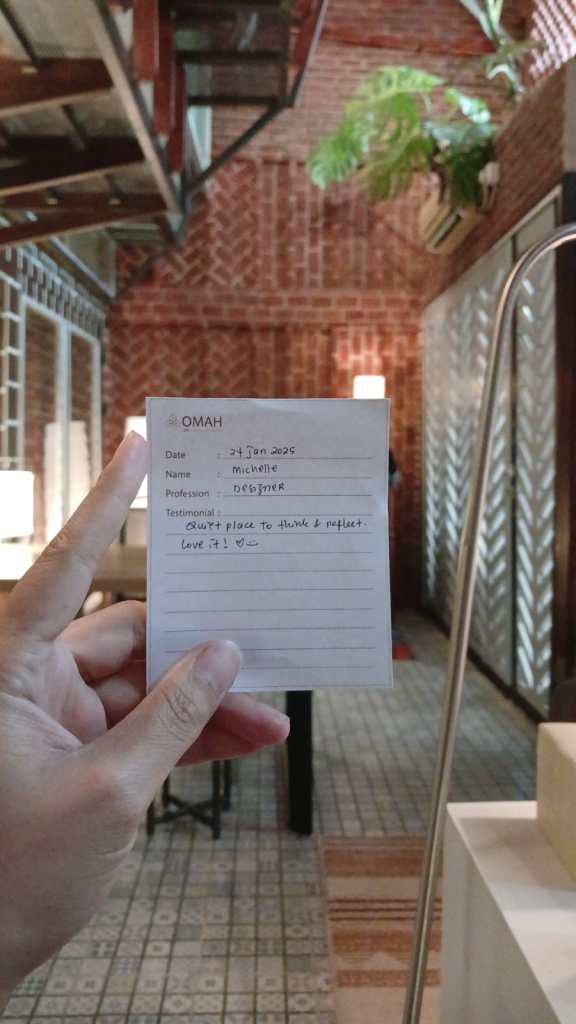 OMAH
Date : 24 Jan 2025
Name : Michelle
Profession : DESIGNER
Testimonial :
Quiet place to think & reflect.
Love it! ♡